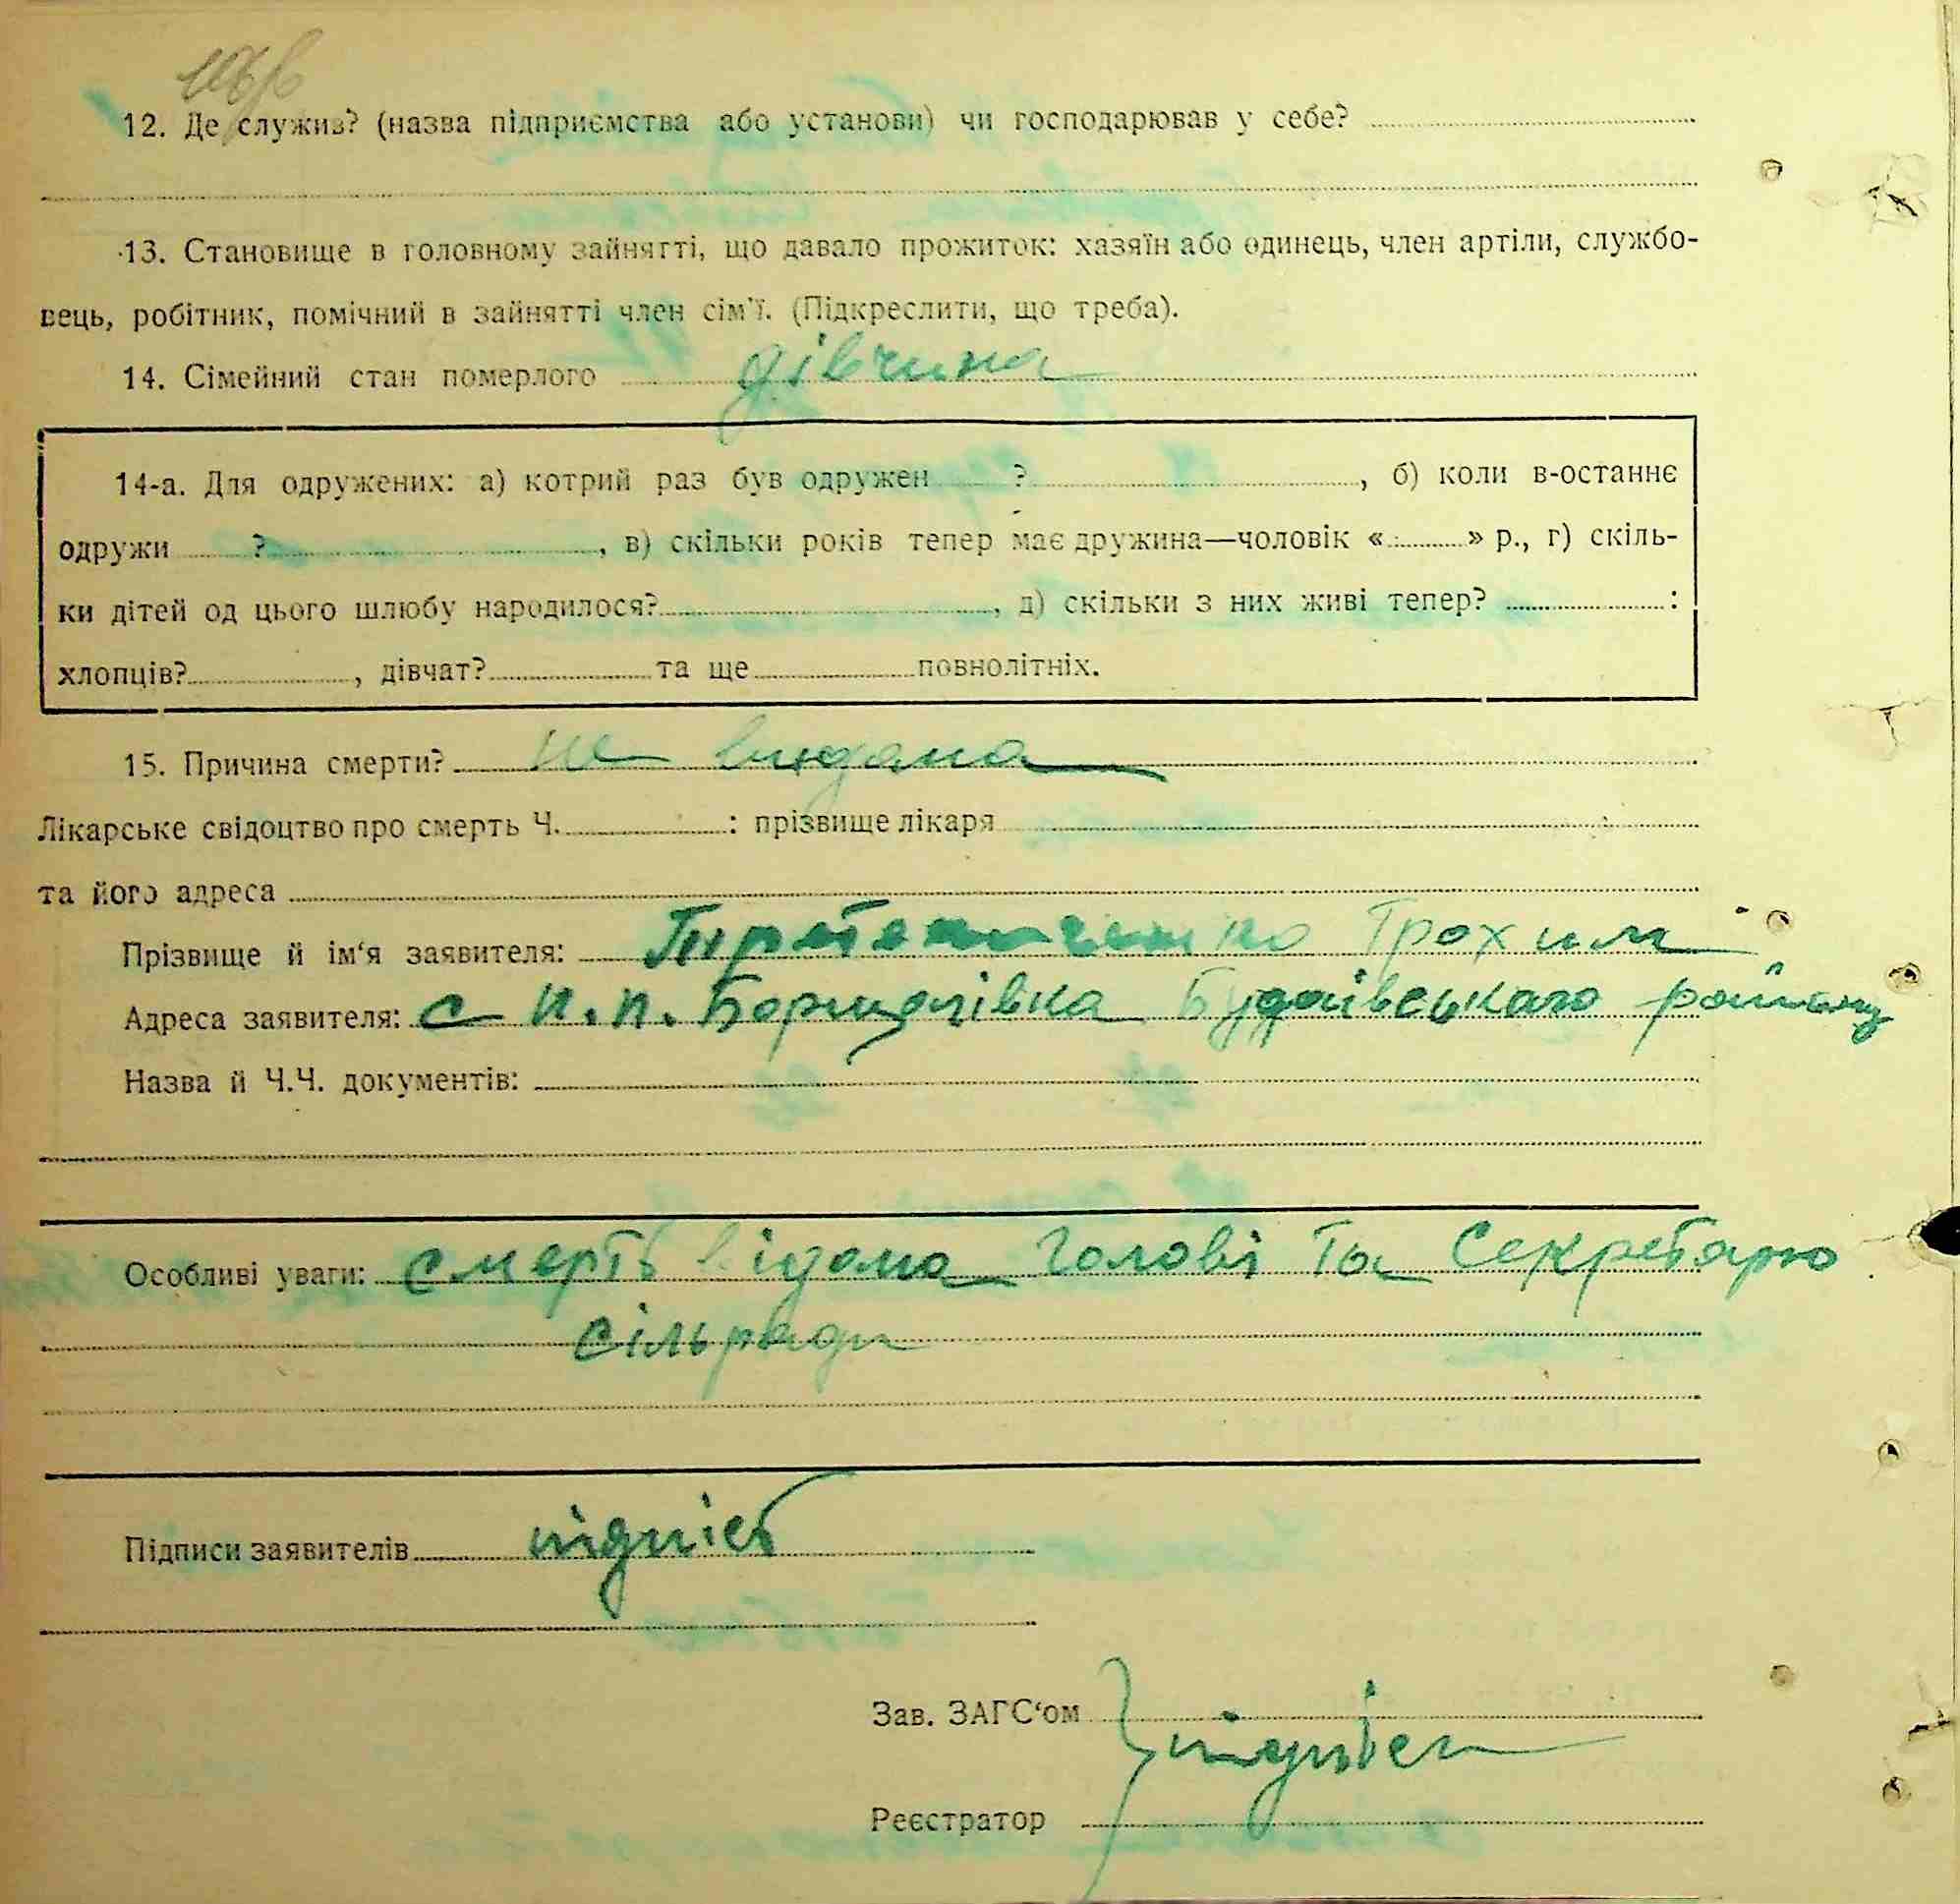 12. Де служив? (назва підприємства або установи) чи господарював у себе?
13. Становище в головному зайнятті, що давало прожиток: хазяїн або одинець, член артіли, службо-
вець, робітник, помічний в зайнятті член сім'ї. (Підкреслити, що треба).
14. Сімейний стан померлого дівчина
14-а. Для одружених: а) котрий раз був одружен ? , б) коли в-останнє
одружи ? , в) скільки років тепер має дружина—чоловік « » р., г) скіль-
ки дітей од цього шлюбу народилося? , д) скільки з них живі тепер? :
хлопців? , дівчат? та ще повнолітніх.
15. Причина смерти? не
Лікарське свідоцтво про смерть Ч. : прізвище лікаря
та його адреса
Прізвище й ім'я заявителя: Трохим
Адреса заявителя: с п.п. Борщагівка Будаївського району
Назва й Ч.Ч. документів:
Особливі уваги: смерть відома Голові та Секретарю
сільради
Підписи заявителів підпісь
Зав. ЗАГС'ом
Реєстратор